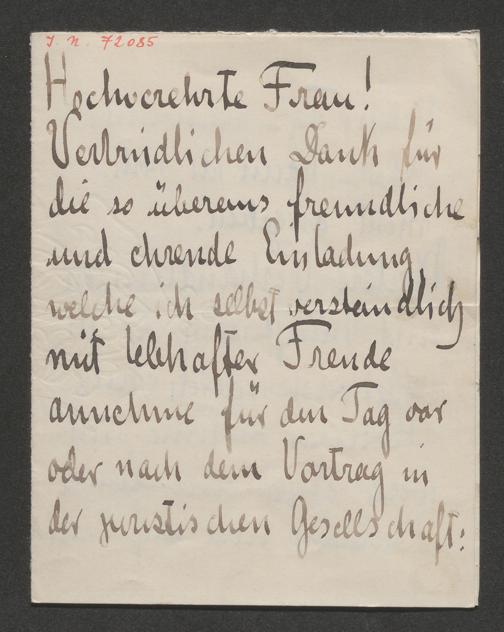 J. N. 72085
Hochverehrte Frau!
Verbindlichen Dank für
die so überaus freundliche
und ehrende Einladung
welche ich selbst verständlich
mit lebhafter Freude
annehme für den Tag vor
oder nach dem Vortrag in
der juristischen Gesellschaft: